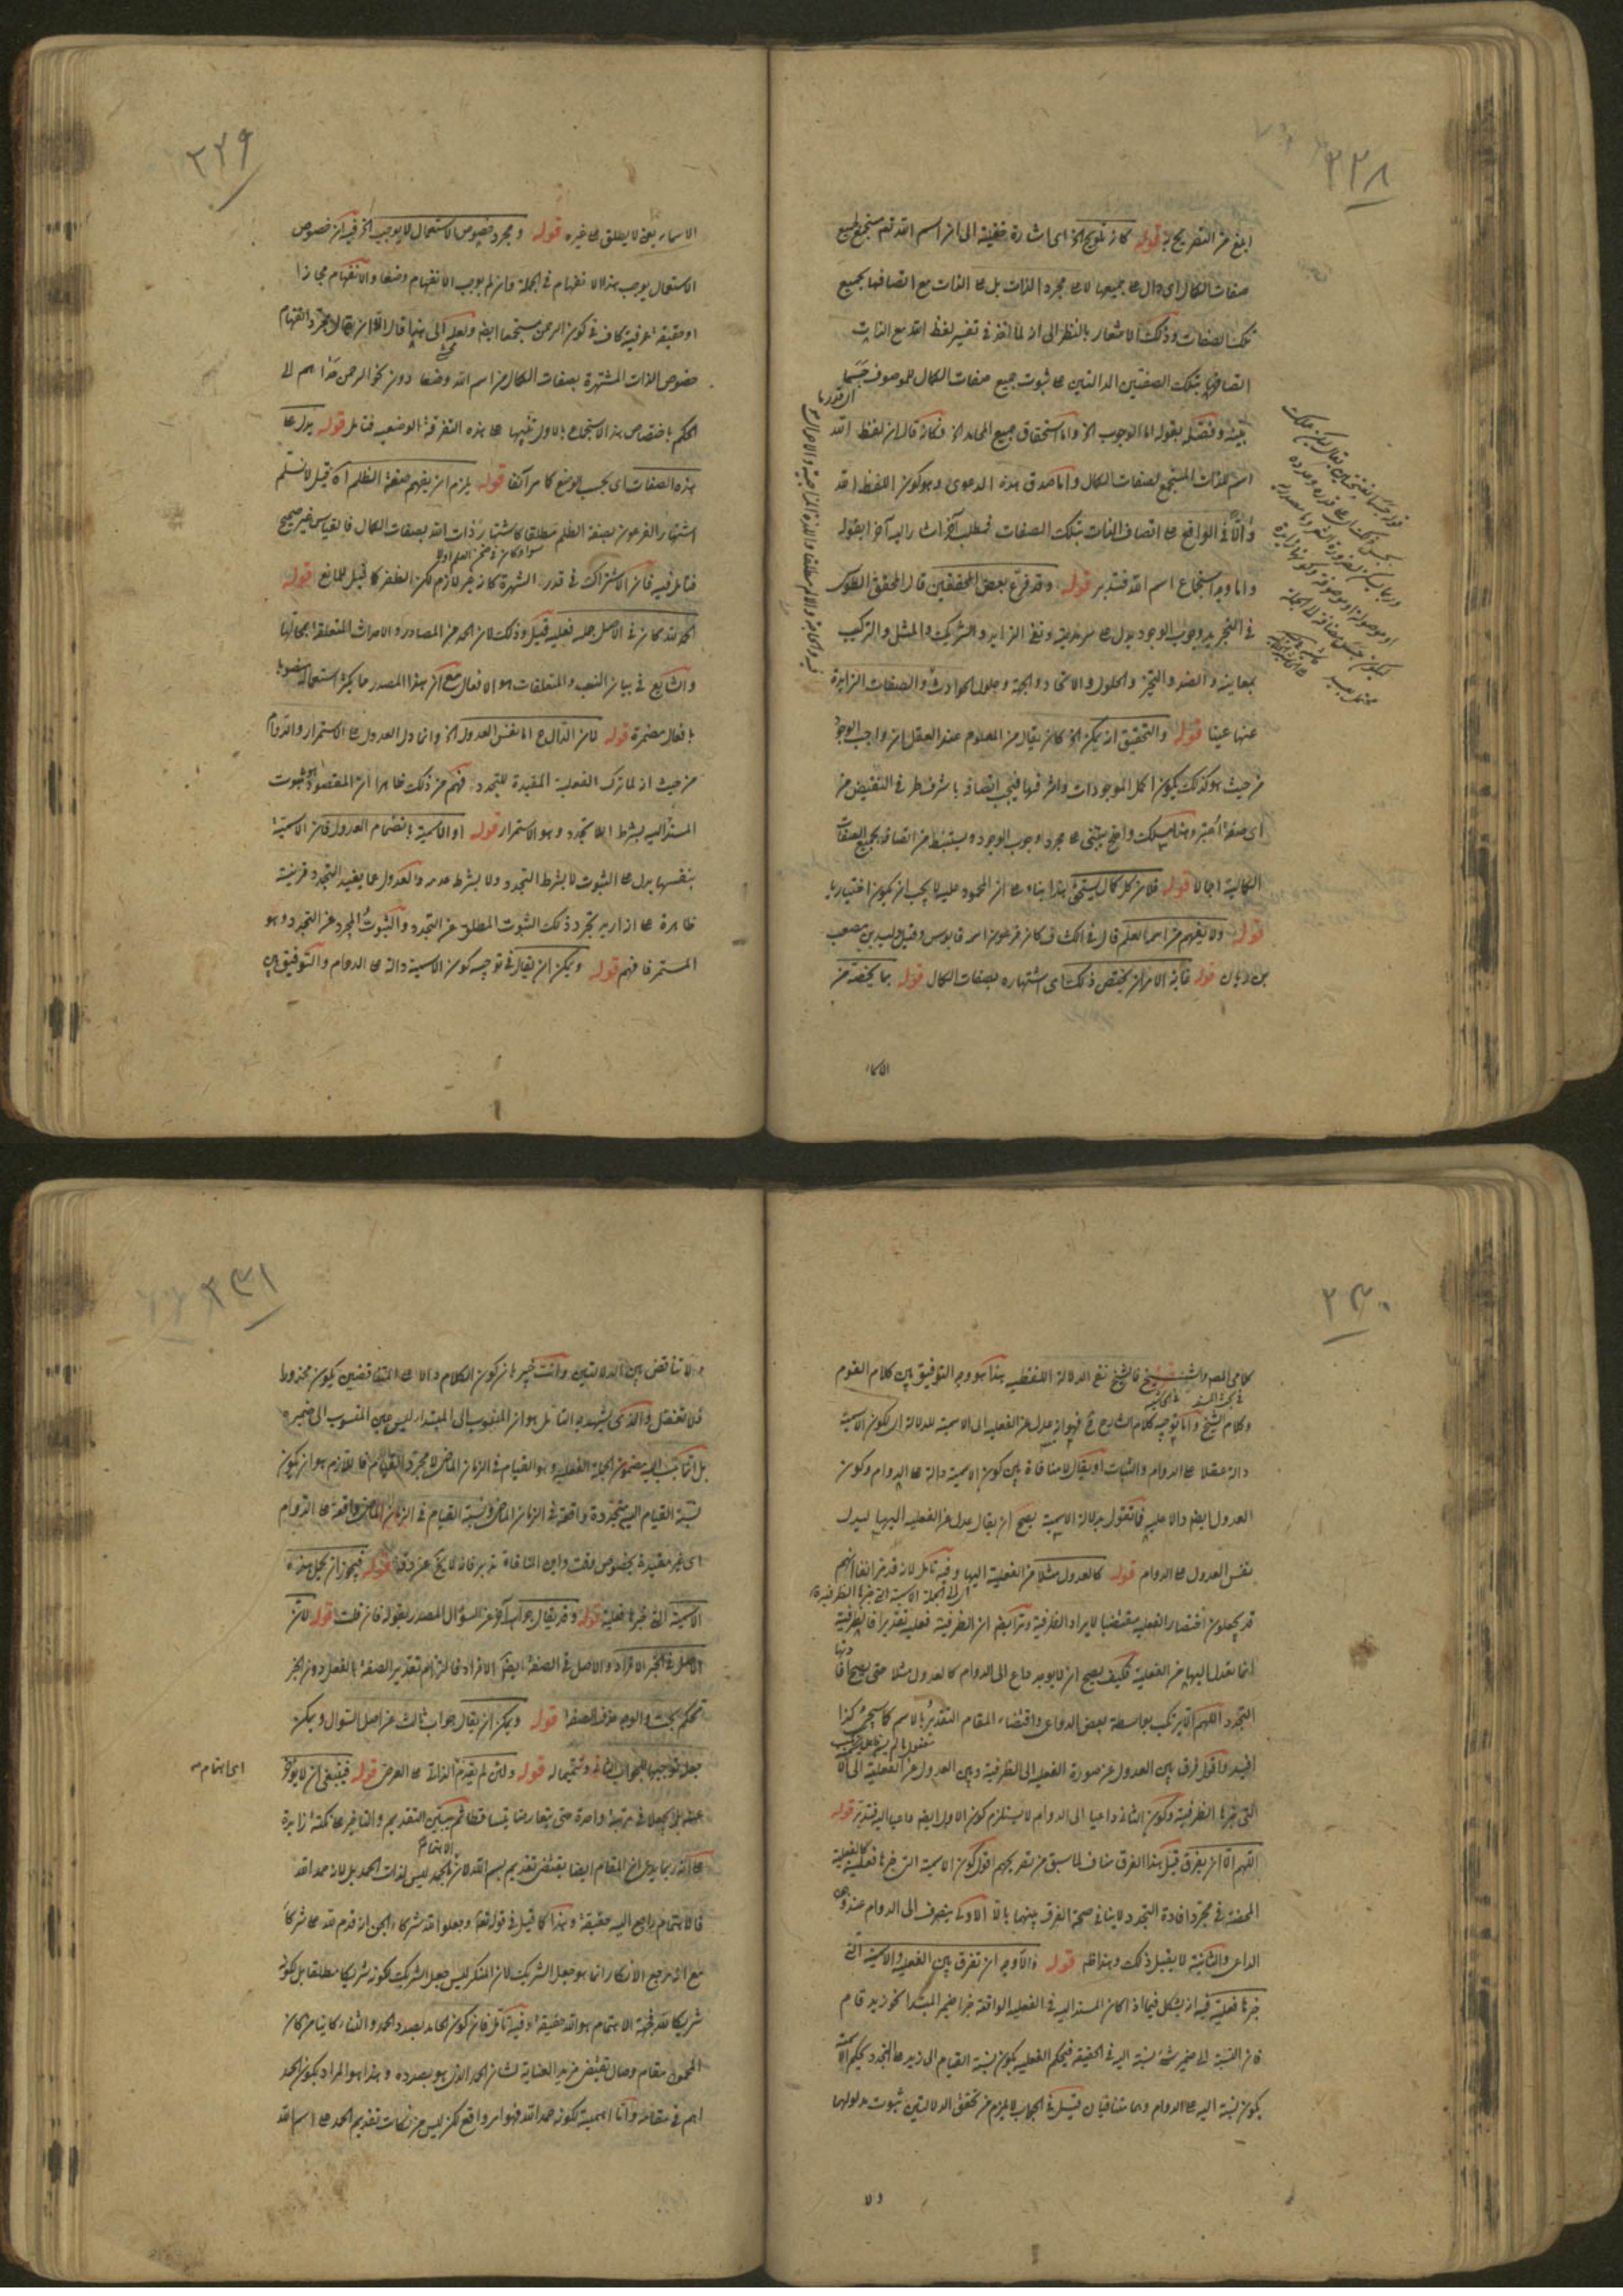 ٢٢٨
ابلغ من التصريح به قوله كانه تلويح الخ اى اشارة خفية الى ان اسم الله تع مستجمع لجميع
صفات الكمال اى دال على جميعها لا على مجرد الذات بل على الذات مع اتصافها بجميع
تلك الصفات وذلك الاشعار بالنظر الى انه لما اخذ فى تفسير لفظ الله مع الذات
اتصافها بتلك الصفتين الدالتين على ثبوت جميع صفات الكمال للموصوف حسبما
بينه وفصله بقوله اما الوجوب الخ واما استحقاق جميع المحامد الخ فكانه قال ان لفظ الله
اسم للذات المستجمع لصفات الكمال واما صدق هذه الدعوى وهو كون اللفظ الله
دالا فى الواقع على اتصاف الذات بتلك الصفات فمطلب آخر اشار اليه آخرا بقوله
واما وجه استجماع اسم الله فتدبر قوله وقد فرع بعض المحققين قال المحقق الطوسى
فى التجريد ووجوب الوجود يدل على سرمديته ونفى الزايد والشريك والمثل والتركيب
بمعانيه والضد والتحيز والحلول والاتحاد والجهة وحلول الحوادث والصفات الزايدة
عنها عينا قوله والتحقيق انه يمكن الخ كان يقال من المعلوم عند العقل ان واجب الوجود
من حيث هو كذلك يكون اكمل الموجودات واشرفها فيجب اتصافه باشرف طرفى النقيض من
اى صفة اعتبر وهذا مسلك واضح يبتنى على مجرد وجوب الوجود ويستنبط منه اتصافه بجميع الصفات
الكمالية اجمالا قوله فلان كل كمال يستحق هذا بناء على ان المحمود عليه لا يجب ان يكون اختياريا
قوله ولا يفهم من اسم العلم قال فى الكشاف كان فرعون اسمه قابوس وقيل وليد بن مصعب
بن ريان قوله فانه الامر ان يختص ذلك اى اشتهاره بصفات الكمال قوله بما يخصه من
الاسماء
٢٢٩
الاسماء يعنى لا يطلق على غيره قوله ومجرد خصوص الاستعمال لا يوجب الخ فيه ان خصوص
الاستعمال يوجب هذا الانفهام فى الجملة وان لم يوجب الانفهام وضعا والانفهام مجازا
او حقيقة عرفية كاف فى كون الرحمن مستجمعا ايض ولعله الى هنا قال الا ان يقال مجرد انفهام
خصوص الذات المشتهرة بصفات الكمال من اسم الله وضعا دون نحو الرحمن هذا هم لى
الحكم باختصاص هذا الاستجماع بالاول تنبيها على هذه التفرقة الوضعيه فتامل قوله يدل على
هذه الصفات اى بحسب الوضع كما مر آنفا قوله يلزم ان يفهم صفة الظلم اه قيل لا نسلم
اشتهار الفرعون بصفة الظلم مطلقا كاشتهار ذات الله بصفات الكمال فالقياس غير صحيح
فتامل فيه فان الاشتراك فى قدر الشهرة كانه غير لازم لكن الظفر كا قيل للمانع قوله
الحمد لله كان فى الاصل جمله فعليه قيل وذلك لان الحمد من المصادر والاحداث المتعلقة بمحالها
والشايع فى بيان النسب والمتعلقات هو الافعال مع ان هذا المصدر مما يكثر استعماله منصوبا
بافعال مضمرة قوله لان الدال على اما نفس العدول الخ وانما دل العدول على الاستمرار والدوام
من حيث انه لما ترك الفعلية المفيدة للتجدد فهم من ذلك ظاهرا ان المقصود هو ثبوت
المسند اليه بشرط اللا تجدد وهو الاستمرار قوله او الاسمية بانضمام العدول فان الاسمية
بنفسها يدل على الثبوت لا بشرط التجدد ولا بشرط عدمه والعدول عما يفيد التجدد قرينة
ظاهرة على انه اريد تجرد ذلك الثبوت المطلق عن التجدد والثبوت المجرد عن التجدد وهو
المستمر فافهم قوله ويمكن ان يقال فى توجيه كون الاسمية دالة على الدوام والتوفيق بين
٢٣٠
كلامى المص والشيخ فالشيخ نفى الدلالة اللفظيه هذا هو وجه التوفيق بين كلام القوم
وكلام الشيخ واما توجيه كلام الشارح فهو انه عدل من الفعليه الى الاسميه للدلالة اى لكون الاسمية
دالة عقلا على الدوام والثبات او يقال لا منافاة بين كون الاسمية دالة على الدوام وكون
العدول ايض دالا عليه فانقول بدلالة الاسمية يصح ان يقال عدل من الفعليه اليها ليدل
نفس العدول على الدوام قوله كالعدول مثلا من الفعلية اليها وفيه تامل لانه قد مر آنفا انهم
قد يجعلون اختصار الفعليه مقتضيا لايراد الظرفية وترا كيف ان الظرفية فعليه تقديرا فالظرفية
انما يعدل اليها من الفعليه فكيف يصح ان لا يوجد داع الى الدوام كالعدول مثلا حتى يصح افادتها
التجدد اللهم الا ان يرتكب بواسطة بعض الدواعى واقتضاء المقام التقدير بالاسم كما سيجئ كذا
افيد واقول فرق بين العدول عن صورة الفعليه الى الظرفية وبين العدول عن الفعلية الى الا
التى خبرها الظرفية وكون الثانى داعيا الى الدوام لا يستلزم كون الاول ايض داعيا اليه فتدبر قوله
اللهم الا ان يفرق قيل هذا الفرق مناف لما سبق من تصريحهم اقول كون الاسمية التى خبرها فعلية كالفعلية
المحضة فى مجرد افادة التجدد لا ينافى صحة الفرق بينهما بان الاولى ينصرف الى الدوام عند وجود
الداعى والثانية لا يقبل ذلك وهذا ظ قوله والاوجه ان تفرق بين الفعليه والاسمية التى
خبرها فعلية فيه انه يشكل فيما اذا كان المسند اليه فى الفعليه الواقعة خبرا ضمير المبتدا نحو زيد قام
فان النسبة الى ضمير شئ نسبة اليه فى الحقيقة فبحكم الفعليه يكون نسبة القيام الى زيد على التجدد وبحكم الاسمية
يكون نسبة اليه على الدوام وهما متنافيان قيل فى الجواب لا يلزم من تحقق الدلالتين ثبوت مدلولهما
ولا
٢٣١
ولا تناقض بين الدلالتين وانت خبير بان كون الكلام دالا على المتناقضين يكون محذورا
فلا تغفل والذى يشهد به التامل هو ان المنسوب الى المبتدا ليس عين المنسوب الى ضميره
بل انما نسب اليه مضمون الجملة الفعليه وهو القيام فى الزمان الماضى لا مجرد القيام فاللازم هو ان يكون
نسبة القيام اليه متجددة واقعة فى الزمان الماضى ونسبة القيام فى الزمان الماضى واقعة على الدوام
اى غير مقيدة بخصوص وقت واين المنافاة تدبر فانه لا يخ عن دقة قوله فيجوز ان يجعل هذه
الاسمية التى خبرها فعلية قوله وقد يقال جواب آخر عن السؤال المصدر بقوله فان قلت قوله لان
الاصل فى الخبر الافراد والاصل فى الصفة ايض الافراد فالتزام تقدير الصفة بالفعل دون الخبر
تحكم بحت والوجه حذف الصفة قوله ويمكن ان يقال جواب ثالث عن اصل السؤال ويمكن
جعله توجيها للجواب الثانى وتتميما له قوله ولئن لم يقدم الذاتى على العرضى قوله فينبغى ان لا يؤخر
عنه بل يجعلا فى مرتبة واحدة حتى يتعارضا يتساقطا ثم يبتنى التقديم والتاخير على نكتة زايدة
على انه ربما يدعى ان المقام ايضا يقتضى تقديم اسم الله لان الحمد ليس لذات الحمد بل لانه حمد الله
فالاهتمام راجع اليه حقيقة وهذا كما قيل فى قوله تعا وجعلوا لله شركاء الجن انه قدم لله على شركاء
مع ان مرجع الانكار انما هو جعل الشريك لان المنكر ليس جعل الشريك لكونه شريكا مطلقا بل لكونه
شريكا لله فجهة الاهتمام هو الله حقيقة وفيه تامل فان كون الحامد بصدد الحمد والثناء كاينا من كان
المحمود مقام وحال يقتضى مزيد العناية لشان الحمد الذى هو بصدده وهذا هو المراد بكون الحمد
اهم فى مقامنا واما اهميته لكونه حمد الله فهو امر واقع لكن ليس من نكات تقديم الحمد على اسم الله